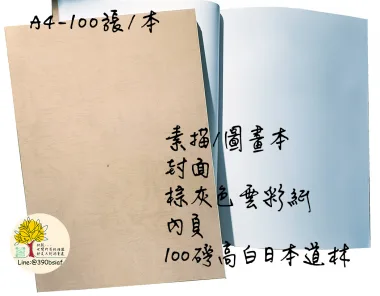 A4-100張/本
素描/圖畫本
封面
棕灰色雲彩紙
內頁
100磅高白日本道林
Line:@390bsief